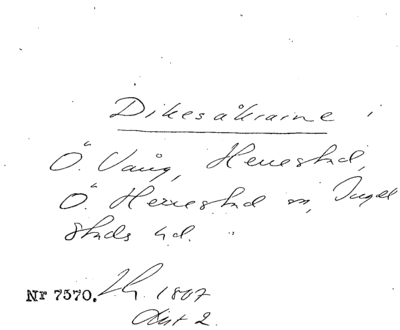 Dikesåkraine i
Ö. Vång, Herrestad,
Ö. Herrestad sn, Ingel
stads hd.
Nr 7570. 1807
Akt 2.